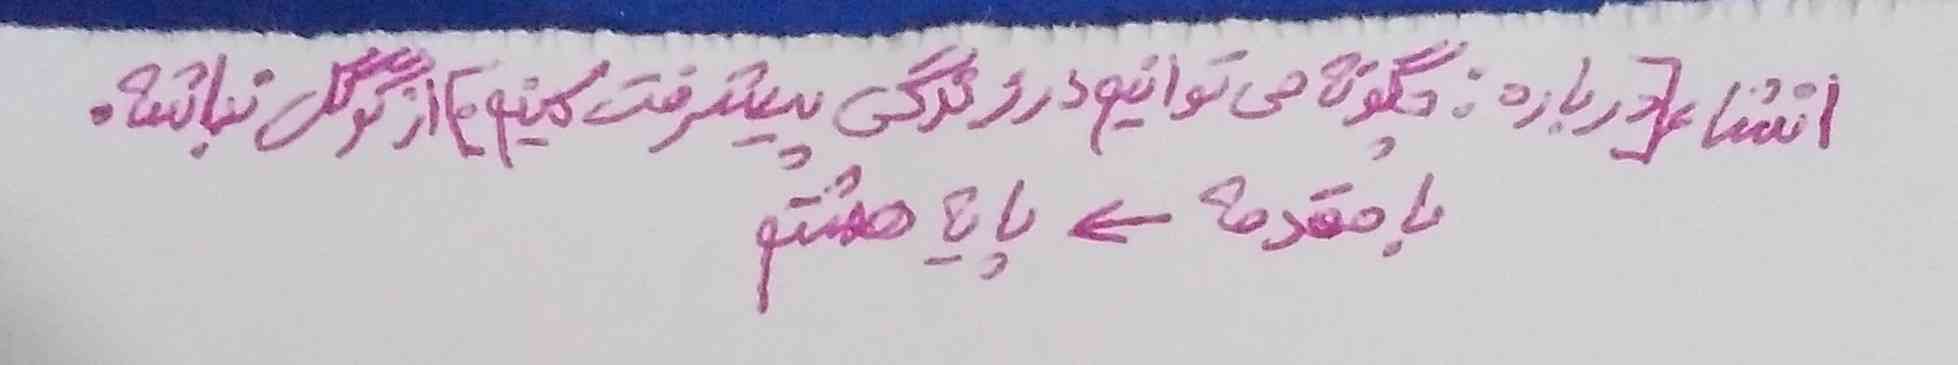 انشاء [درباره: چگونه می توانیم در زندگی پیشرفت کنیم] از گوگل نباشه.
با مقدمه ← پایه هشتم